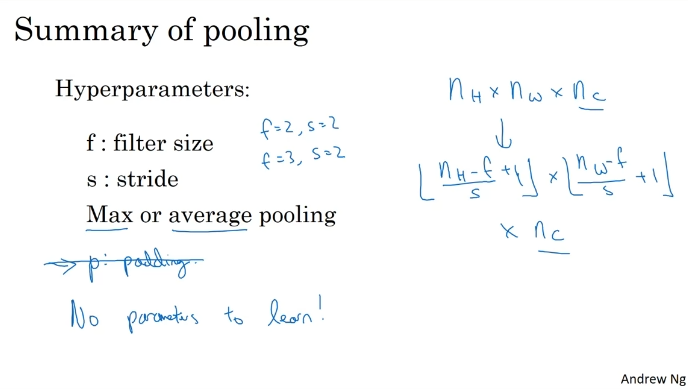 Summary of pooling
Hyperparameters:
f : filter size
f=2, s=2
f=3, s=2
s : stride
Max or average pooling
→ p: padding.
No parameters to learn!
n_H × n_W × n_C
↓
⌊(n_H − f)/s + 1⌋ × ⌊(n_W − f)/s + 1⌋
× n_C
Andrew Ng